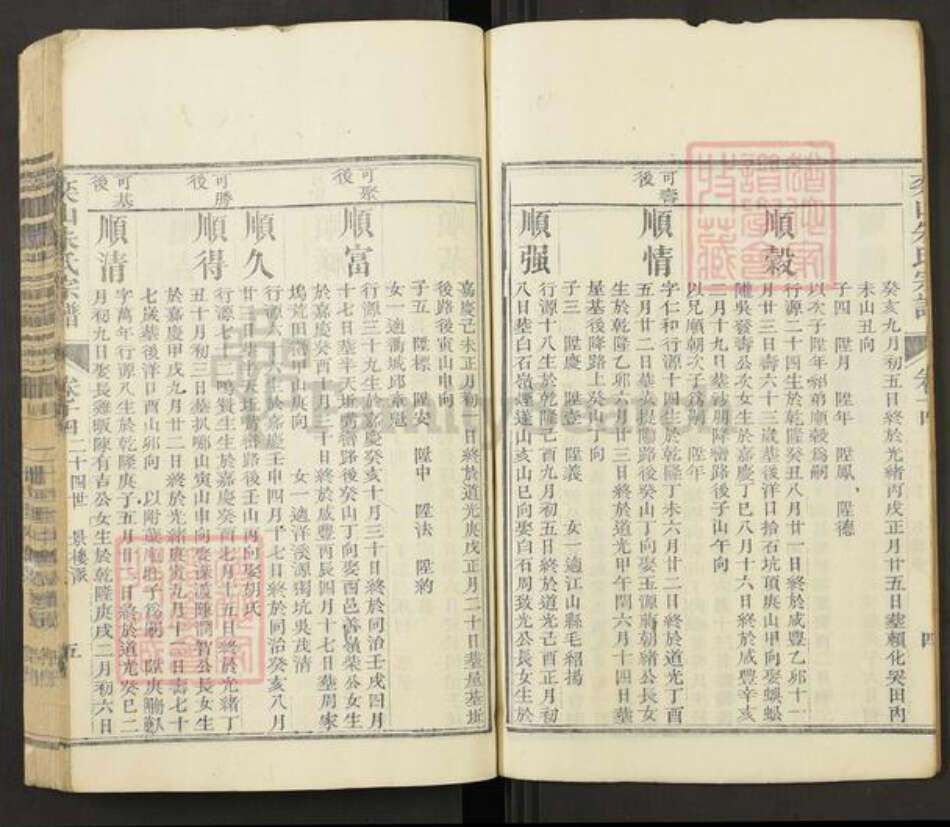 癸亥九月初五日終於光緒丙戌正月廿五日塟賴化突田內
未山丑向
子四 陞月 陞年 陞鳳 陞德
以次子陞年紹弟順穀為嗣
順穀
行源二十四生於乾隆癸丑八月廿一日終於咸豐乙卯十一
月廿三日壽六十三歲墓後洋日拾石坑頂庚山甲向娶蜈蚣
隴吳發壽公次女生於嘉慶丁巳八月十六日終於咸豐辛亥
二月十九日塟後路後子山午向
以兄順朝次子為嗣 陞年
可壽後
順情
字仁和行源十四生於乾隆丁未六月廿二日終於道光丁酉
五月廿二日塟路後癸山丁向娶玉源蔣朝緒公長女
生於乾隆乙卯六月廿三日終於道光甲午閏六月十四日塟
屋基後降路上癸山丁向
子三 陞慶 陞壹 陞義 女一適江山縣毛紹揚
順强
行源十八生於乾隆己酉九月初五日終於道光己酉正月初
八日塟白石嶺亥山巳向娶白石周致光公長女生於
嘉慶己未正月初一日終於道光庚戌正月二十日塟屋基坵
後路後寅山申向
子五 陞標 陞安 陞中 陞法 陞豹
女一適衢城邱章冠
可聚後
順富
行源三十九生於嘉慶癸亥十月三十日終於同治壬戌四月
十七日塟半天路後癸山丁向娶西邑善嶺柴公女生
於嘉慶癸酉十月三十日終於咸豐丙辰四月十七日塟周家
塢荒田甲山庚向 女一適洋溪源獨坑吳茂清
順久
行源六六生於嘉慶壬申四月十七日終於同治癸亥八月
廿三日路後壬山丙向娶胡氏
可勝後
順得
行源七二鳴贊生生於嘉慶癸酉七月十五日終於光緒丁
丑十月初三日塟扒嘟山寅山申向娶陳潤智公長女生
於嘉慶甲戌九月廿二日終於光緒庚寅九月十一日壽七十
七歲墓後洋日酉山卯向 以附為嗣 陞庚
可基後
順清
字萬年行源八生於乾隆庚子五月廿一日終於道光癸巳二
月初九日娶長陳有吉公女生於乾隆庚戌二月初六日
朱氏宗譜 卷十四 二十四世 景樓派 五